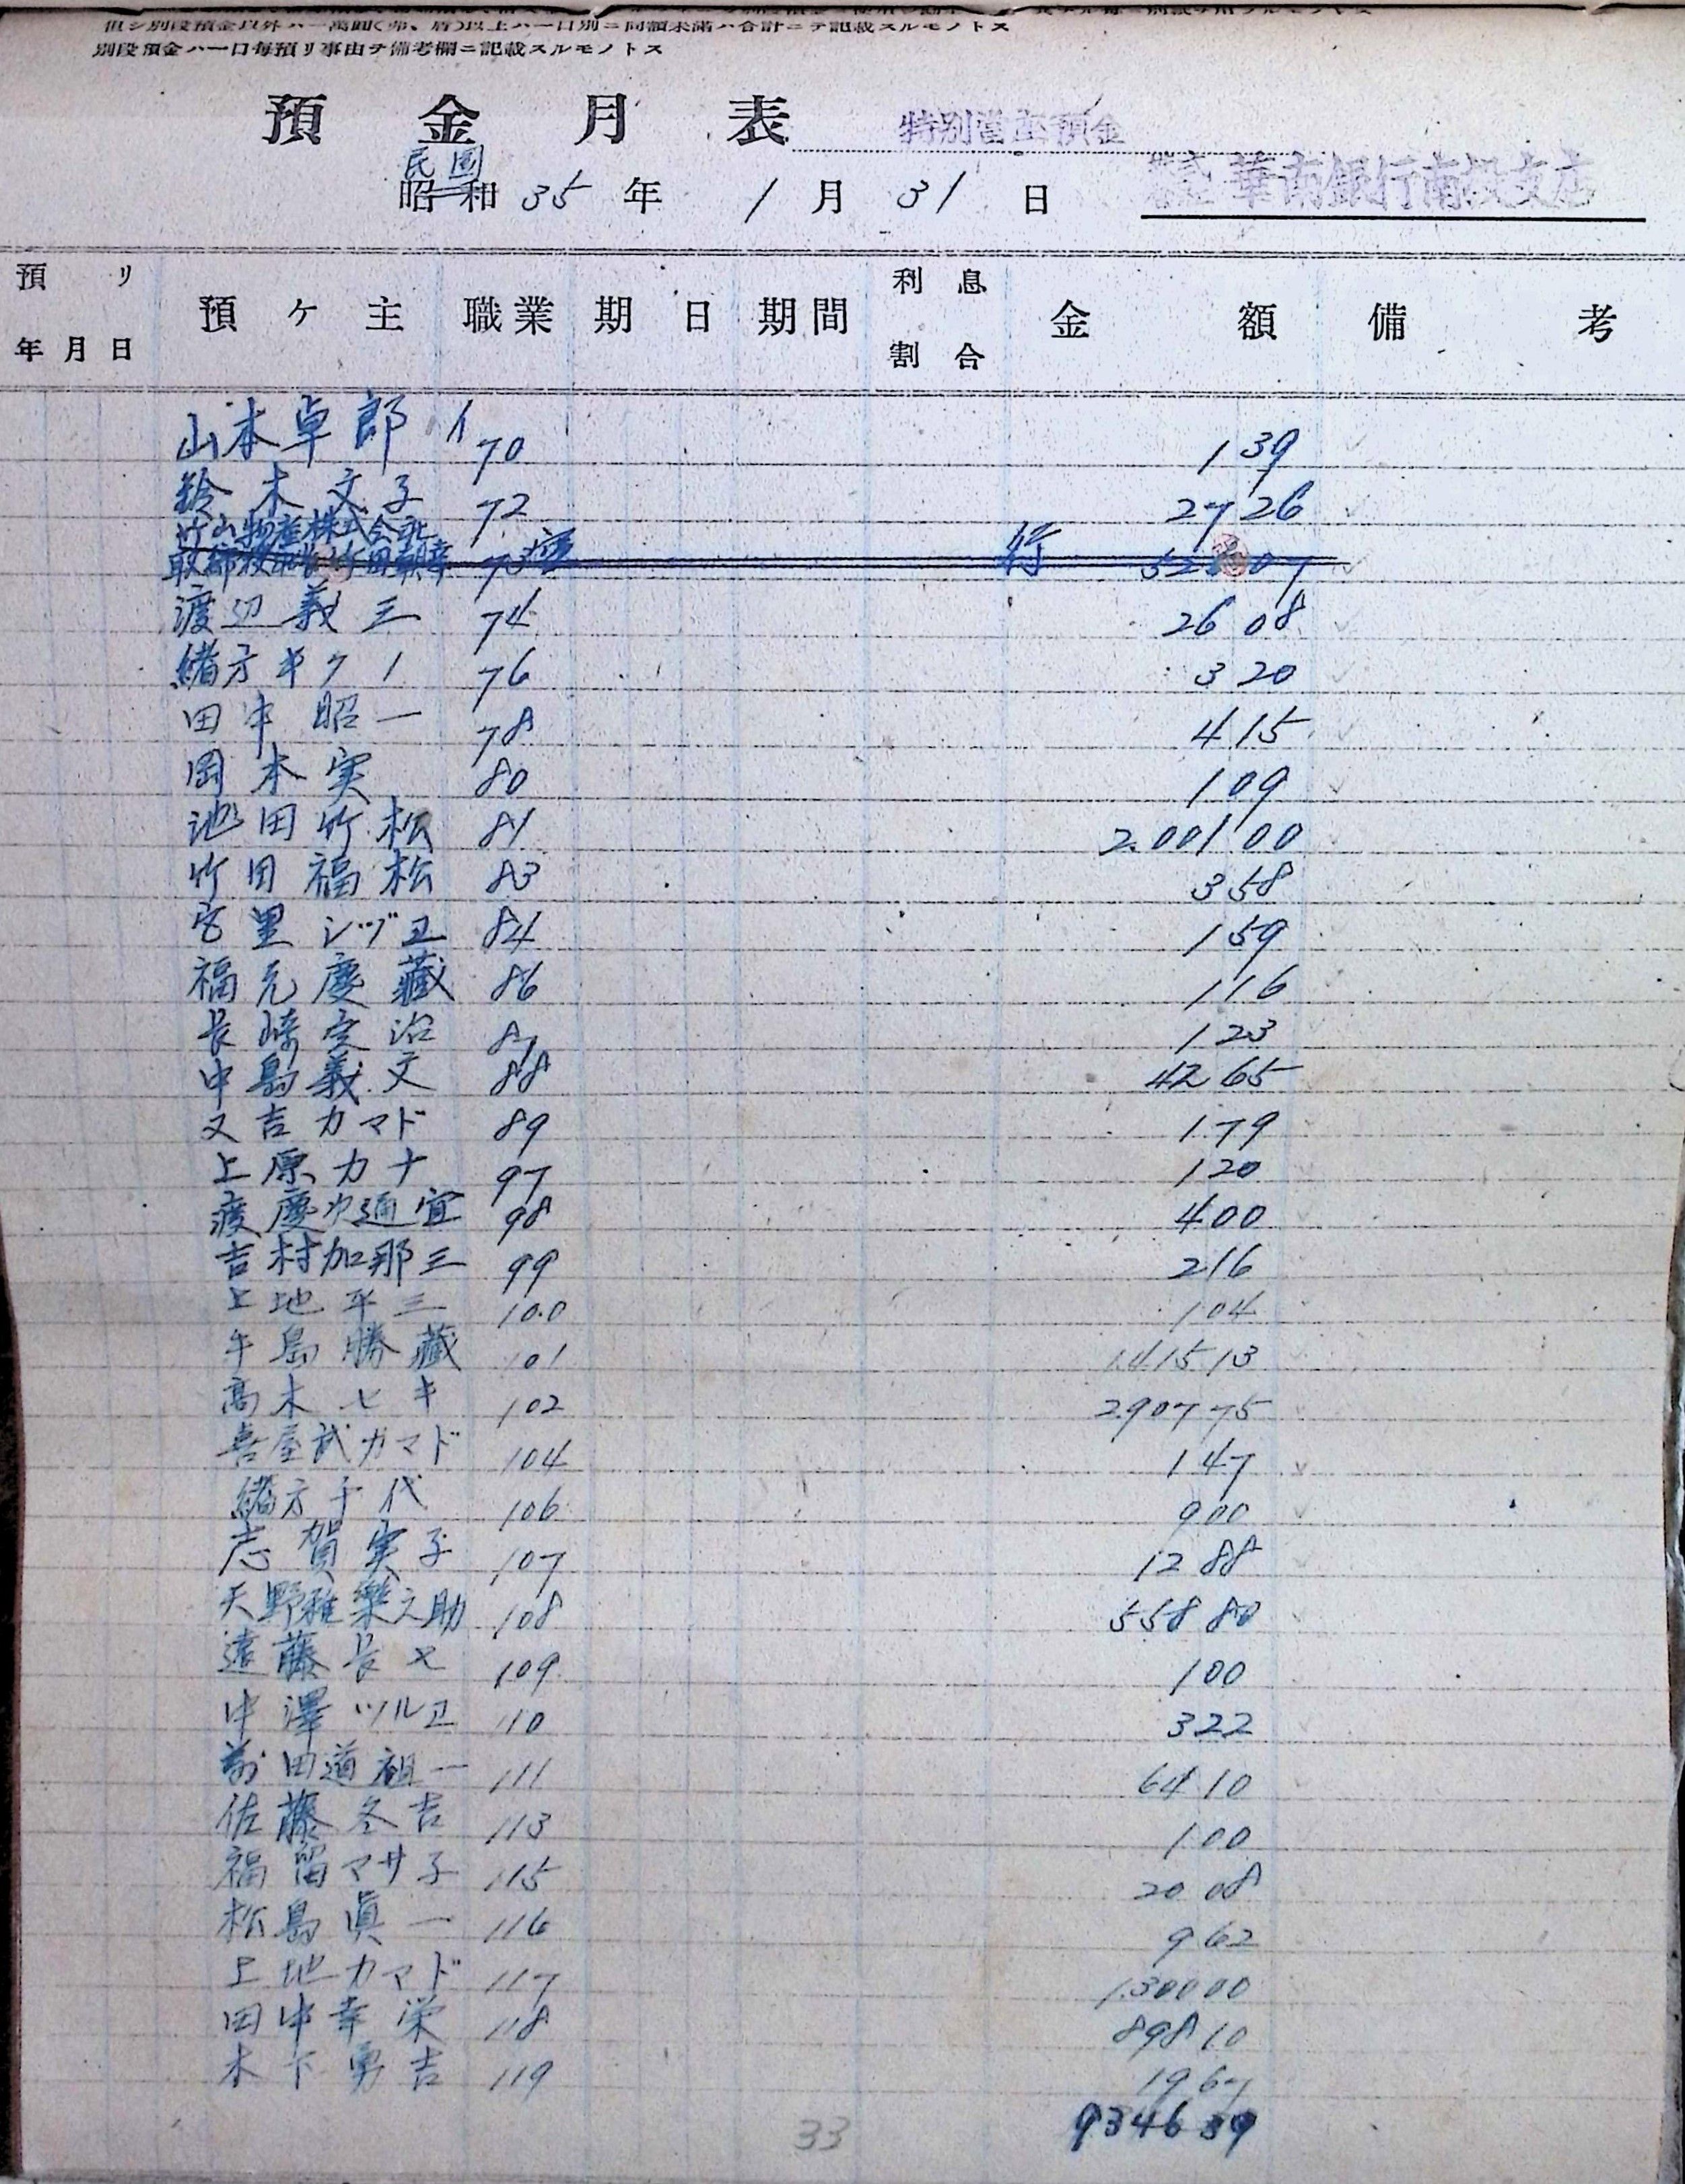 但シ別段預金以外ハ一萬圓(弗、盾)以上ハ一口別ニ同額未滿ハ合計ニテ記載スルモノトス
別段預金ハ一口每預リ事由ヲ備考欄ニ記載スルモノトス
預金月表 特別當座預金
民國
昭和 35 年 1 月 31 日 株式会社 華南銀行南投支店
預リ年月日 預ケ主 職業 期日 期間 利息割合 金額 備考
山本卓郎 イ 70 139
鈴木文子 72 2726
竹山物產株式会社
取締役 竹田朝章 73
渡辺義三 74 2608
緒方キクノ 76 320
田中昭一 78 415
岡本実 80 109
池田竹松 81 2.00100
竹田福松 83 358
宮里シヅヱ 84 159
福元慶藏 86 116
長崎実治 87 123
中島義文 88 4265
又吉カマド 89 179
上原カナ 97 120
渡慶次通宜 98 400
吉村加那三 99 216
上地平三 100 104
牛島勝藏 101 1.41513
高木セキ 102 2.90775
喜屋武カマド 104 147
緒方千代 106 900
志賀実子 107 1288
天野雅樂之助 108 55880
遠藤長七 109 100
中澤ツルヱ 110 322
前田道祖一 111 6410
佐藤冬吉 113 100
福留マサ子 115 2008
松島眞一 116 962
上地カマド 117 1.30000
田中幸栄 118 89810
木下勇吉 119 1967
33 934639